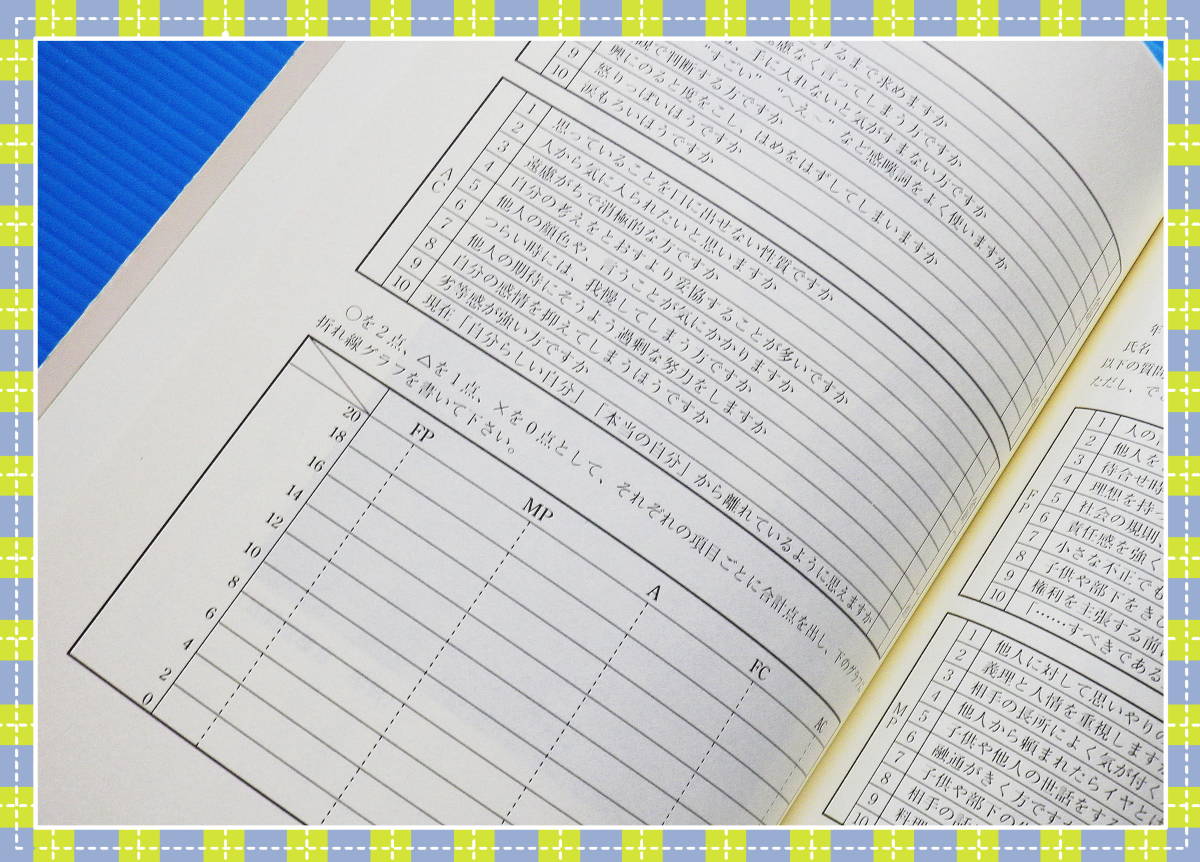 するまで求めますか
慮なく言ってしまう方ですか
手に入れないと気がすまない方ですか
“すごい”“へえ～”など感嘆詞をよく使いますか
説で判断する方ですか
興にのると度をこし、はめをはずしてしまいますか
9 怒りっぽいほうですか
10 涙もろいほうですか
AC
1 思っていることを口に出せない性質ですか
2 人から気に入られたいと思いますか
3 遠慮がちで消極的な方ですか
4 自分の考えをとおすより妥協することが多いですか
5 他人の顔色や、言うことが気にかかりますか
6 つらい時には、我慢してしまう方ですか
7 他人の期待にそうよう過剰な努力をしますか
8 自分の感情を抑えてしまうほうですか
9 劣等感が強い方ですか
10 現在「自分らしい自分」「本当の自分」から離れているように思えますか
○を2点、△を1点、×を0点として、それぞれの項目ごとに合計点を出し、下のグラフに
折れ線グラフを書いて下さい。
FP MP A FC AC
20
18
16
14
12
10
8
6
4
2
0
年
氏名
以下の質問
ただし、で
FP
1 人の
2 他人を
3 待合せ時
4 理想を持っ
5 社会の規則、
6 責任感を強く
7 小さな不正でも
8 子供や部下をきび
9 権利を主張する前に
10 「……すべきである
MP
1 他人に対して思いやりの
2 義理と人情を重視しますか
3 相手の長所によく気が付く
4 他人から頼まれたらイヤとは
5 子供や他人の世話をする
6 融通がきく方ですか
7 子供や部下の
8 相手の話
9 料理
10